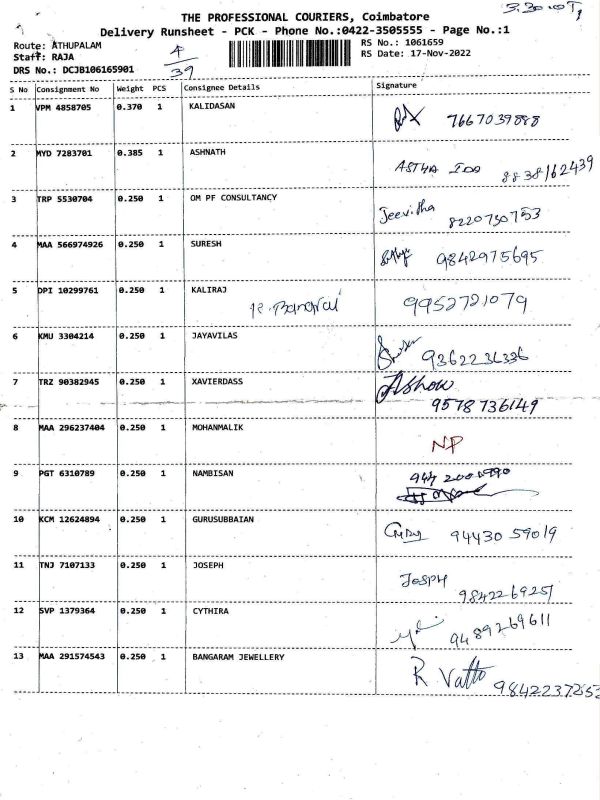 3.30
THE PROFESSIONAL COURIERS, Coimbatore
Delivery Runsheet - PCK - Phone No.:0422-3505555 - Page No.:1
Route: ATHUPALAM
Staff: RAJA
DRS No.: DCJB106165901
4
39
RS No.: 1061659
RS Date: 17-Nov-2022
S No Consignment No Weight PCS Consignee Details Signature
1 VPM 4858705 0.370 1 KALIDASAN 7667039888
2 MYD 7283701 0.385 1 ASHNATH 8838162439
3 TRP 5530704 0.250 1 OM PF CONSULTANCY Jeevitha 8220730753
4 MAA 566974926 0.250 1 SURESH 9842975695
5 DPI 10299761 0.250 1 KALIRAJ 9952721079
6 KMU 3304214 0.250 1 JAYAVILAS 9362236336
7 TRZ 90382945 0.250 1 XAVIERDASS Ashow 9578736149
8 MAA 296237404 0.250 1 MOHANMALIK NP
9 PGT 6310789 0.250 1 NAMBISAN
10 KCM 12624894 0.250 1 GURUSUBBAIAN 9443059019
11 TNJ 7107133 0.250 1 JOSEPH JOSPH 9842269251
12 SVP 1379364 0.250 1 CYTHIRA 9489269611
13 MAA 291574543 0.250 1 BANGARAM JEWELLERY R. Vatto 9842237253